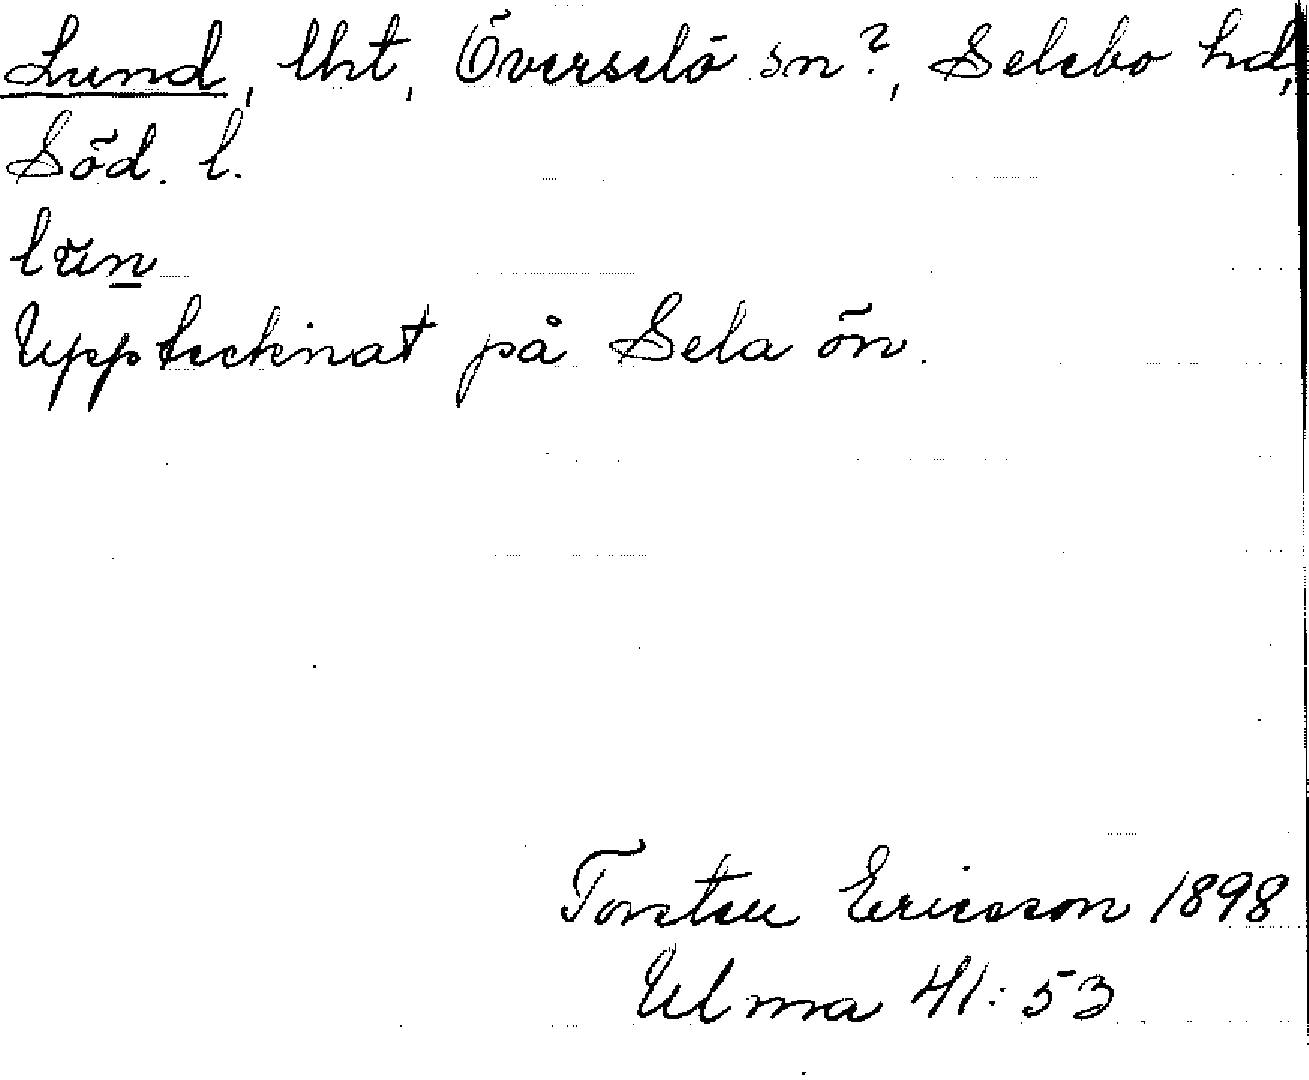 Lund, lht, Överselö sn?, Selebo hd,
Söd. l.
lun
Upptecknat på Sela ön.
Torsten Ericsson 1898
Ulma 41:53